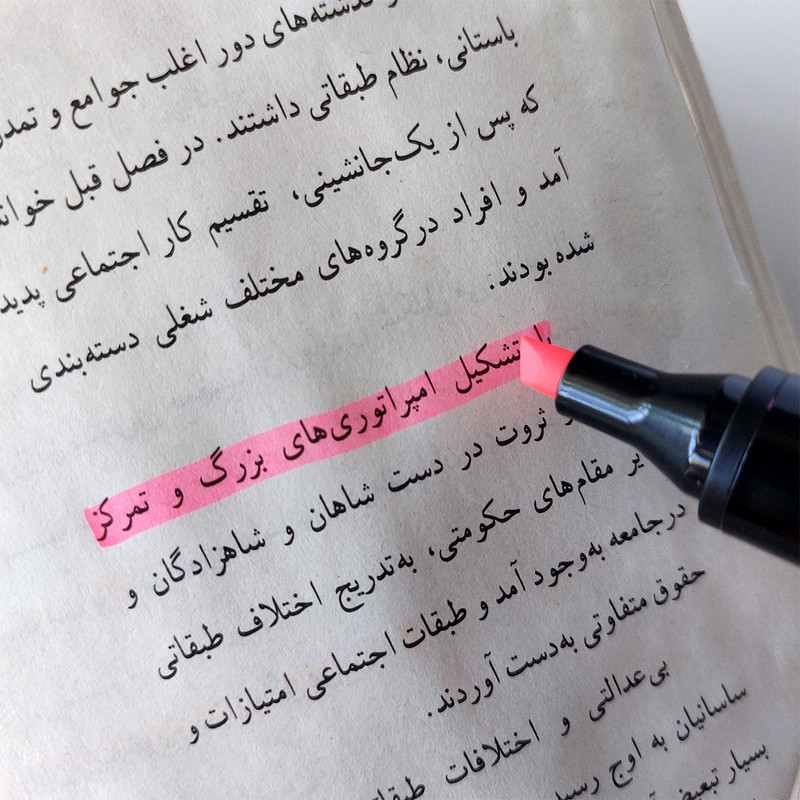 گذشته‌های دور اغلب جوامع و
باستانی، نظام طبقاتی داشتند. در فصل قبل
که پس از یک‌جانشینی، تقسیم کار اجتماعی پدید
آمد و افراد درگروه‌های مختلف شغلی دسته‌بندی
شده بودند.
تشکیل امپراتوری‌های بزرگ و تمرکز
ثروت در دست شاهان و شاهزادگان و
مقام‌های حکومتی، به‌تدریج اختلاف طبقاتی
درجامعه به‌وجود آمد و طبقات اجتماعی امتیازات و
حقوق متفاوتی به‌دست آوردند.
بی‌عدالتی و اختلافات
ساسانیان به اوج
بسیار